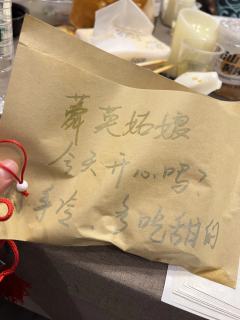 蕣英姑娘
今天开心吗?
手冷,多吃甜的